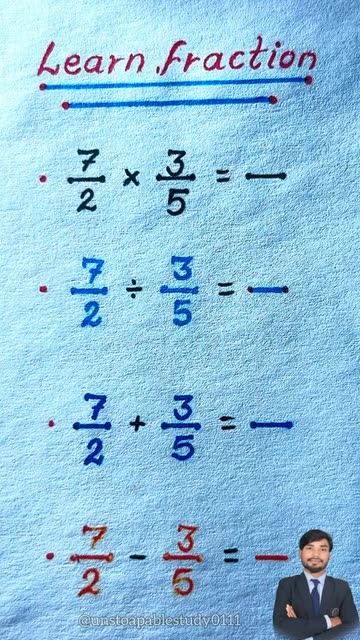 Learn fraction
• 7/2 × 3/5 = —
• 7/2 ÷ 3/5 = —
• 7/2 + 3/5 = —
• 7/2 - 3/5 = —
@unstoapablestudy0111